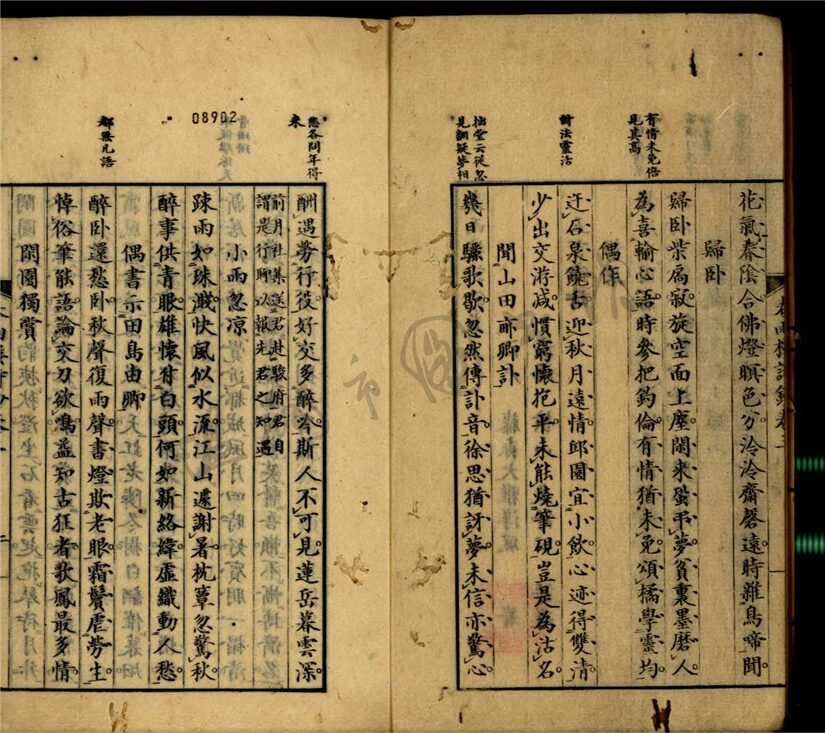 有情未免倍
見其高
詩法靈活
拙堂云從忽
見翻疑夢相
花氣春陰合佛燈暝色分泠泠齋磬遠時雜鳥啼聞
歸卧
歸卧柴扃寂旋空面上塵閑來弔夢貧棗墨磨人
為喜輸心語時參把釣倫有情猶未免頌橘學靈均
偶作
迂石泉饒舌迎秋月遠情邱園宜小飲心迹得雙清
少出交游减慣窮懷抱平未能燒筆硯豈是為沽名
聞山田亦卿訃
幾日驪歌歇忽然傳訃音徐思猶訝夢未信亦驚心
08902
各問年得
來
都無凡語
酬遇勞行役好交多醉吟斯人不可見蓮岳暮雲深
前月社集送君赴駿府君自
謂是行聊以報先君之知遇
小雨忽凉
疎雨如珠濺快風似水流江山遽謝暑枕簟忽驚秋
醉事供青眼雄懷付白頭何如新絡緯虚織動人愁
偶書示田島由卿
醉卧還愁卧秋聲復雨聲書燈欺老眼霜鬢虐勞生
悼俗筆能語論交刀欲鳴益知古狂者歌鳳最多情
閑園獨賞